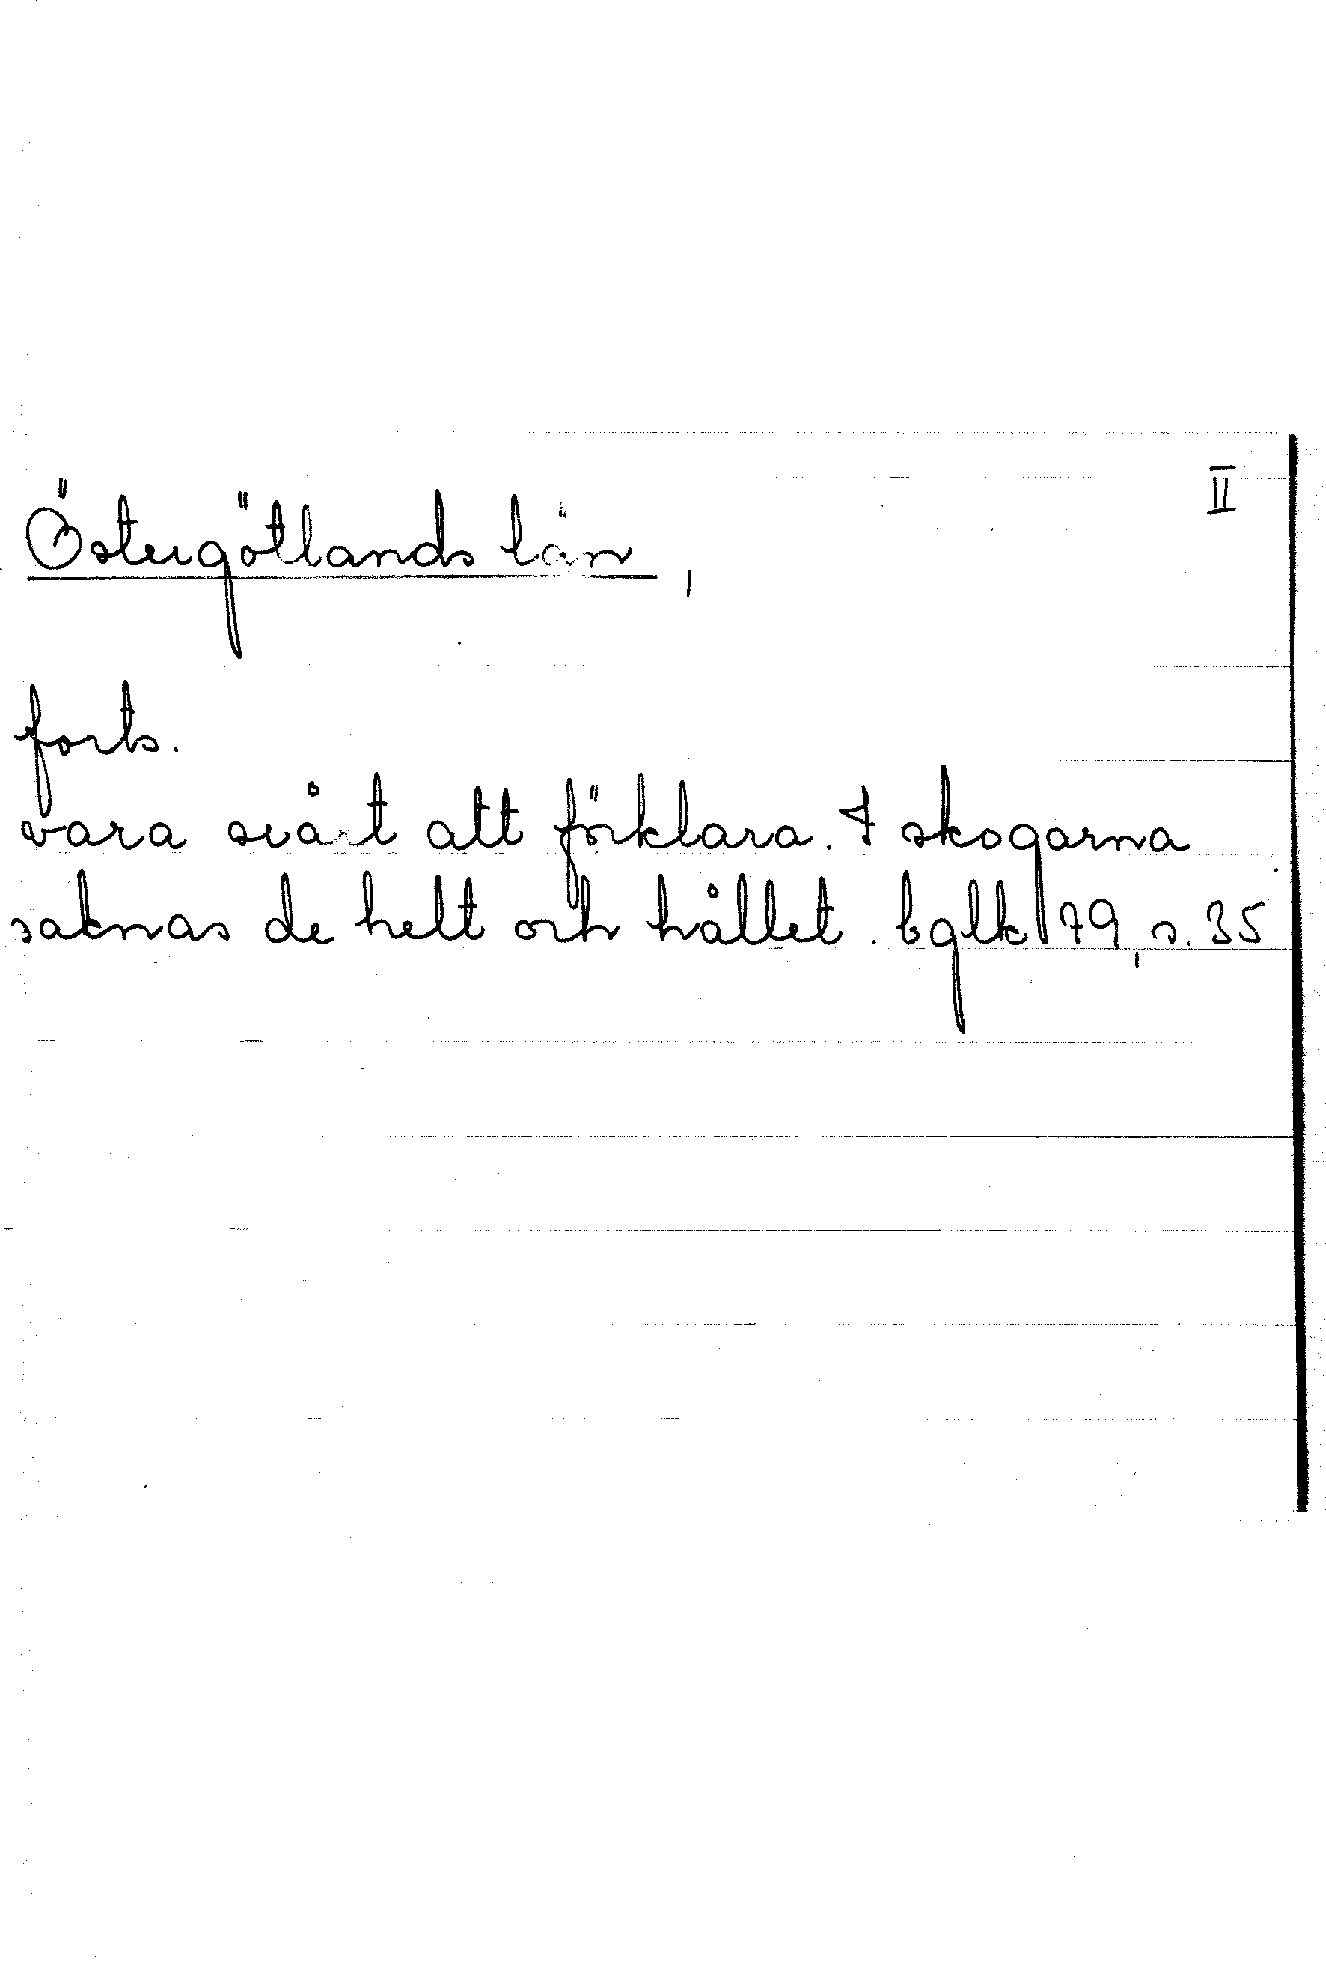 II
Östergötlands län,
forts.
vara svårt att förklara. I skogarna
saknas de helt och hållet. bglk 79, s. 35